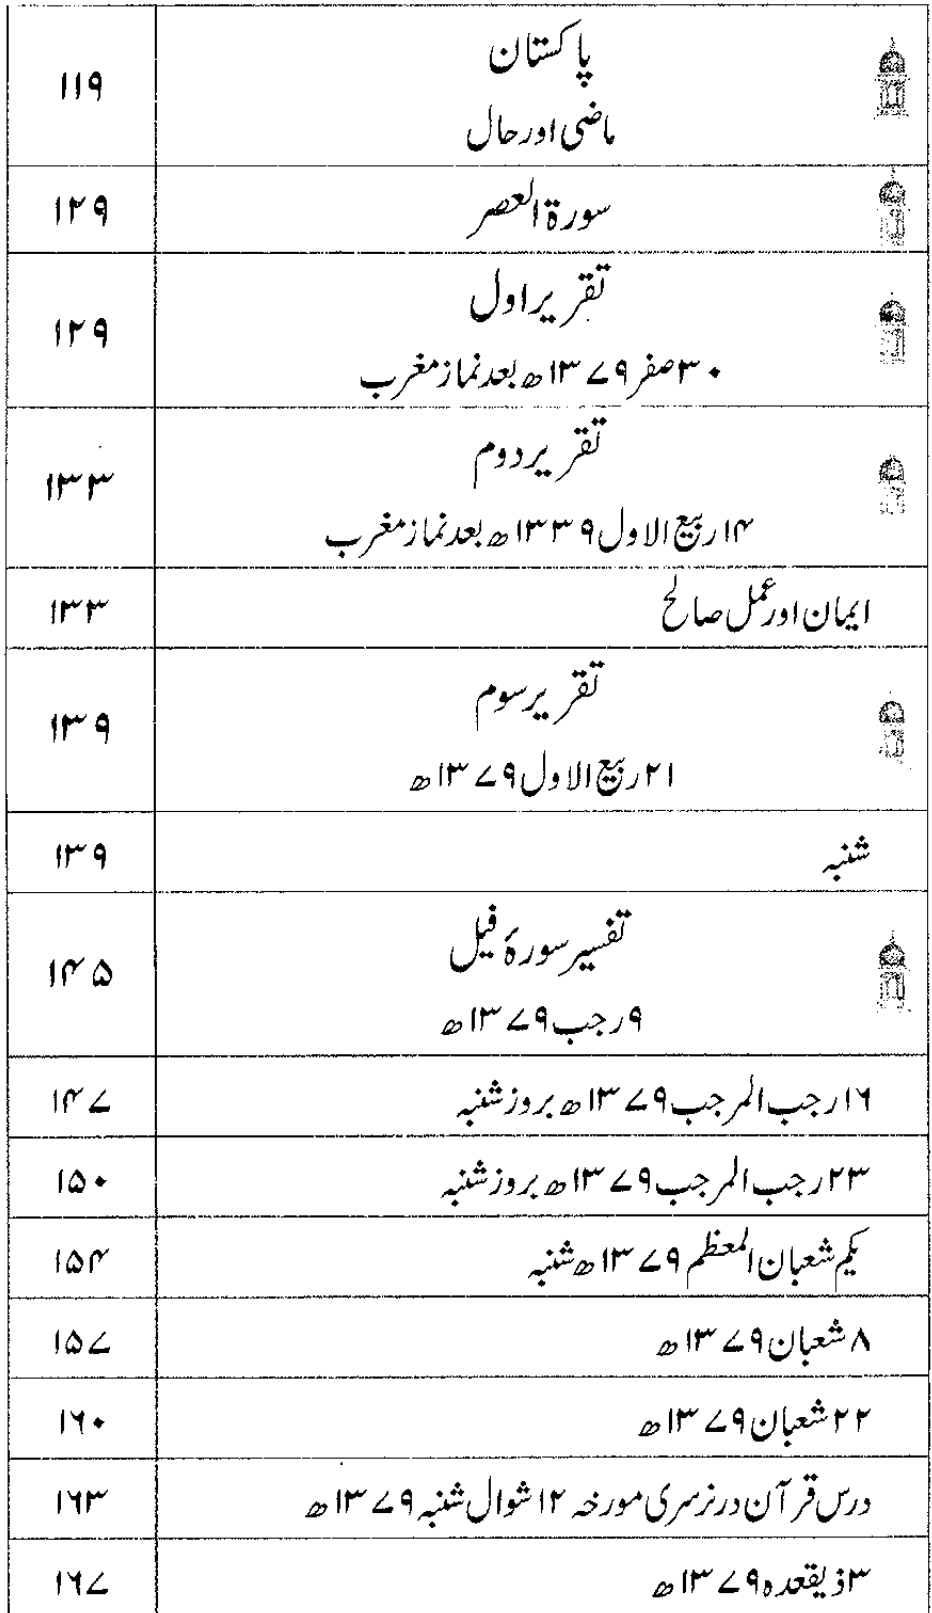 پاکستان
ماضی اور حال
۱۱۹
سورۃ العصر
۱۲۹
تقریر اول
۳۰ صفر ۱۳۷۹ھ بعد نماز مغرب
۱۲۹
تقریر دوم
۱۴ ربیع الاول ۱۳۳۹ھ بعد نماز مغرب
۱۳۳
ایمان اور عمل صالح
۱۳۳
تقریر سوم
۲۱ ربیع الاول ۱۳۷۹ھ
۱۳۹
شنبہ
۱۳۹
تفسیر سورۂ فیل
۹ رجب ۱۳۷۹ھ
۱۴۵
۱۶ رجب المرجب ۱۳۷۹ھ بروز شنبہ
۱۴۷
۲۳ رجب المرجب ۱۳۷۹ھ بروز شنبہ
۱۵۰
یکم شعبان المعظم ۱۳۷۹ھ شنبہ
۱۵۴
۸ شعبان ۱۳۷۹ھ
۱۵۷
۲۲ شعبان ۱۳۷۹ھ
۱۶۰
درس قرآن در نرسری مورخہ ۱۲ شوال شنبہ ۱۳۷۹ھ
۱۶۳
۳ ذیقعدہ ۱۳۷۹ھ
۱۶۷